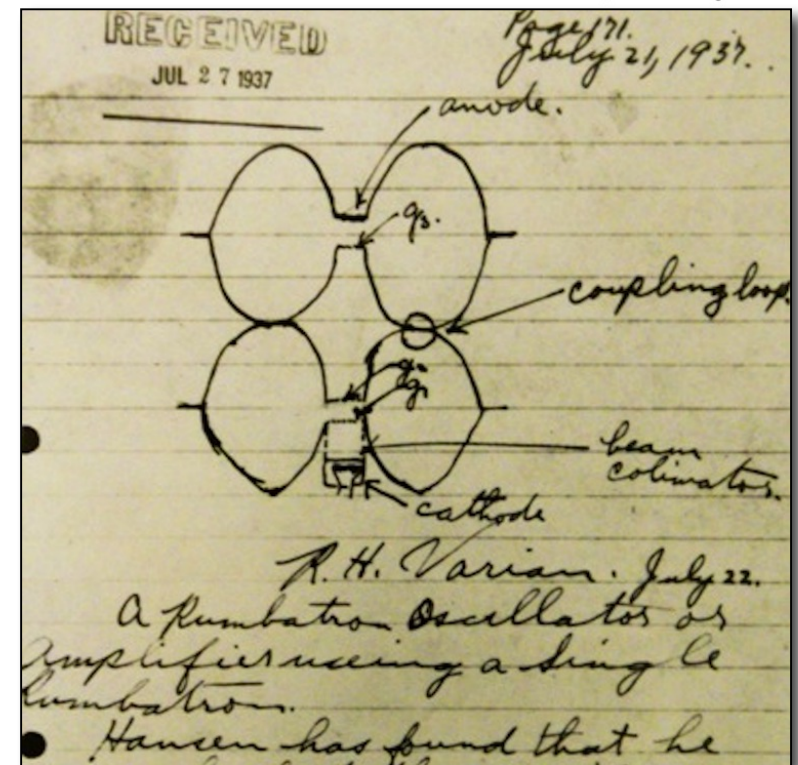 RECEIVED
JUL 27 1937
Page 171.
July 21, 1937.
anode.
g3.
coupling loop.
g2
g1
beam
colimator.
cathode
R. H. Varian. July 22.
A Rumbatron Oscillator or
Amplifier useing a Single
Rumbatron.
Hansen has found that he